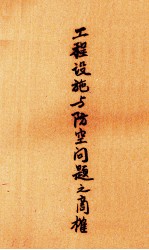 工程设施与防空问题之商榷